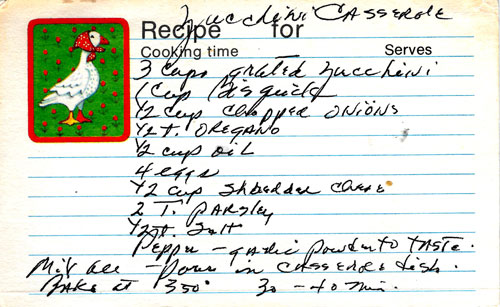 Recipe for Zucchini Casserole
Cooking time Serves
3 cups grated Zucchini
1 cup Bisquick
1/2 cup chopped ONIONS
1/2 T. OREGANO
1/2 cup oil
4 eggs
1/2 cup Shredded Cheese
2 T. PARSley
1/2 t. Salt
Pepper - garlic powder to TASTE.
Mix all - Pour in CASSEROLE dish.
BAKE at 350° 30 - 40 Min.